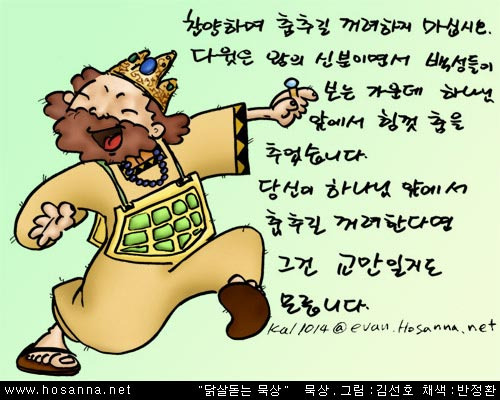 찬양하며 춤추길 꺼려하지 마십시오.
다윗은 왕의 신분이면서 백성들이
보는 가운데 하나님
앞에서 힘껏 춤을
추었습니다.
당신이 하나님 앞에서
춤추길 꺼려한다면
그건 교만일지도
모릅니다.
kal1014@evan.Hosanna.net
www.hosanna.net "닭살돋는 묵상" 묵상.그림:김선호 채색:반정환